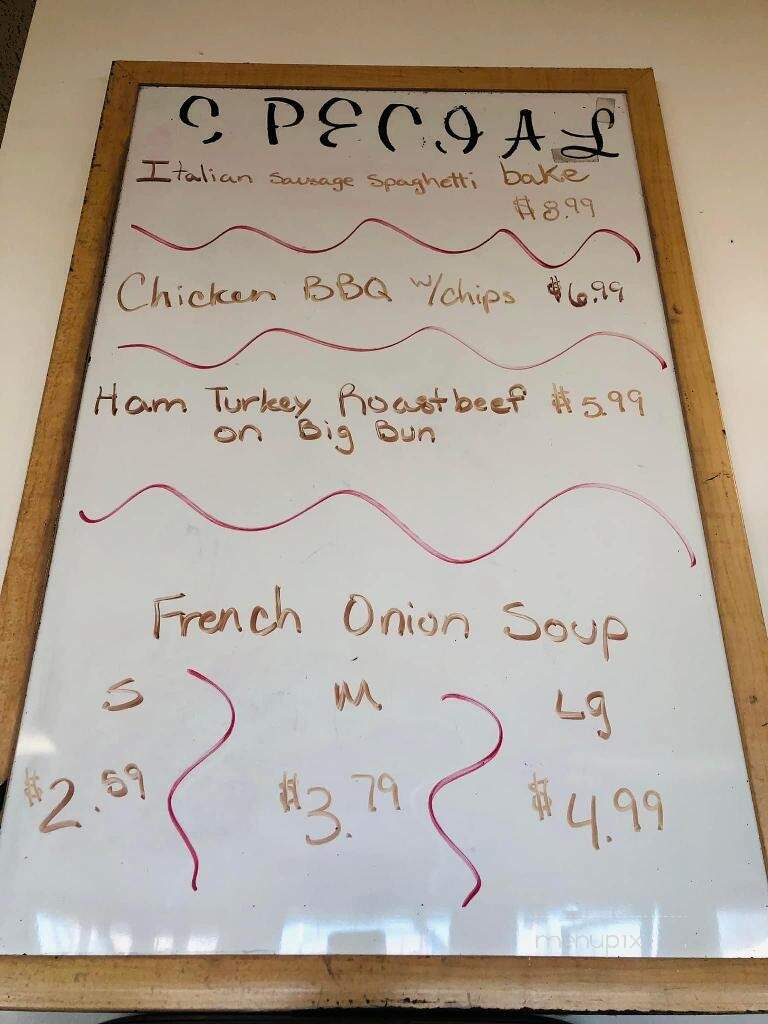 SPECIAL
Italian Sausage Spaghetti bake
$8.99
Chicken BBQ w/chips $6.99
Ham Turkey Roastbeef $5.99
on Big Bun
French Onion Soup
S M Lg
$2.59 $3.79 $4.99
menupix